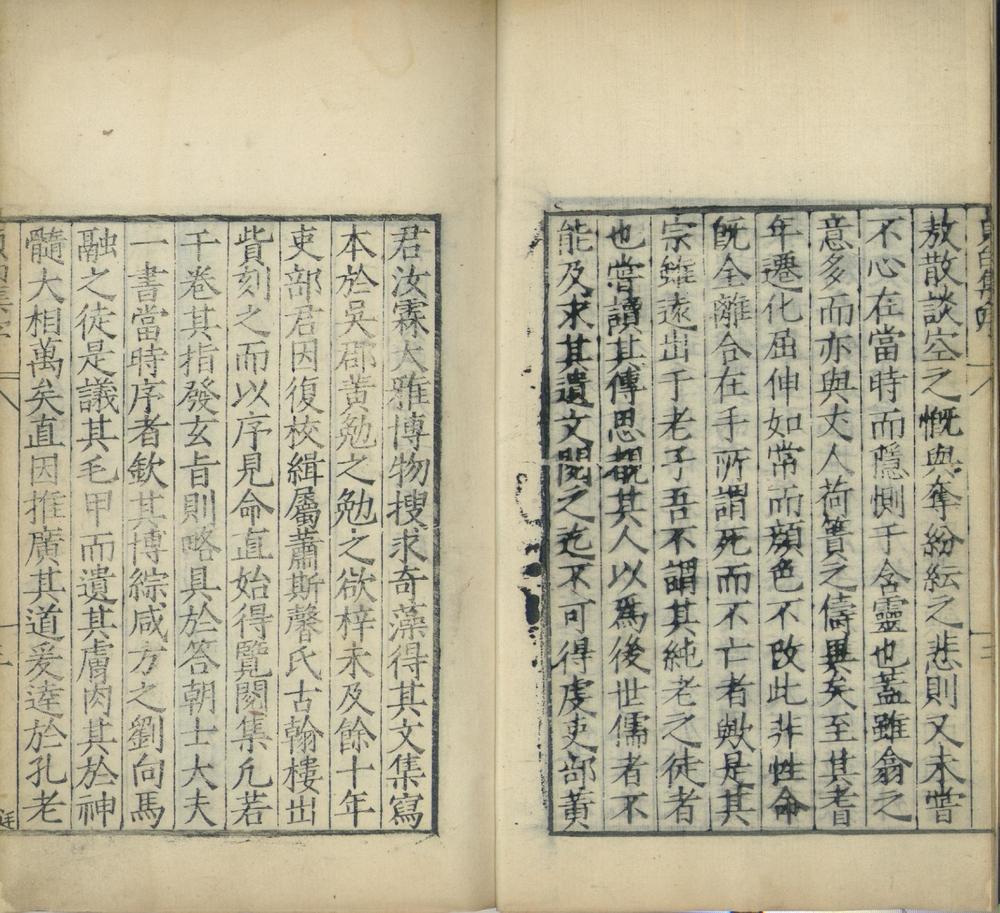 敖散談空之慨與奪紛紜之悲則又未嘗
不心在當時而隱惻于含靈也蓋雖翕之
意多而亦與丈人荷蕢之儔異矣至其耆
年遷化屈伸如常而顏色不改此非性命
既全離合在手所謂死而不亡者歟是其
宗雖遠出于老子吾不謂其純老之徒者
也嘗讀其傳思覩其人以爲後世儒者不
能及求其遺文閱之迄不可得虔吏部黃
君汝霖大雅博物搜求奇藻得其文集寫
本於吳郡黃勉之勉之欲梓未及餘十年
吏部君因復校緝屬蕭斯馨氏古翰樓出
貲刻之而以序見命直始得覽閱集凡若
干卷其指發玄㫖則略具於答朝士大夫
一書當時序者欽其博綜咸方之劉向馬
融之徒是議其毛甲而遺其膚肉其於神
髓大相萬矣直因推廣其道爰逹於孔老